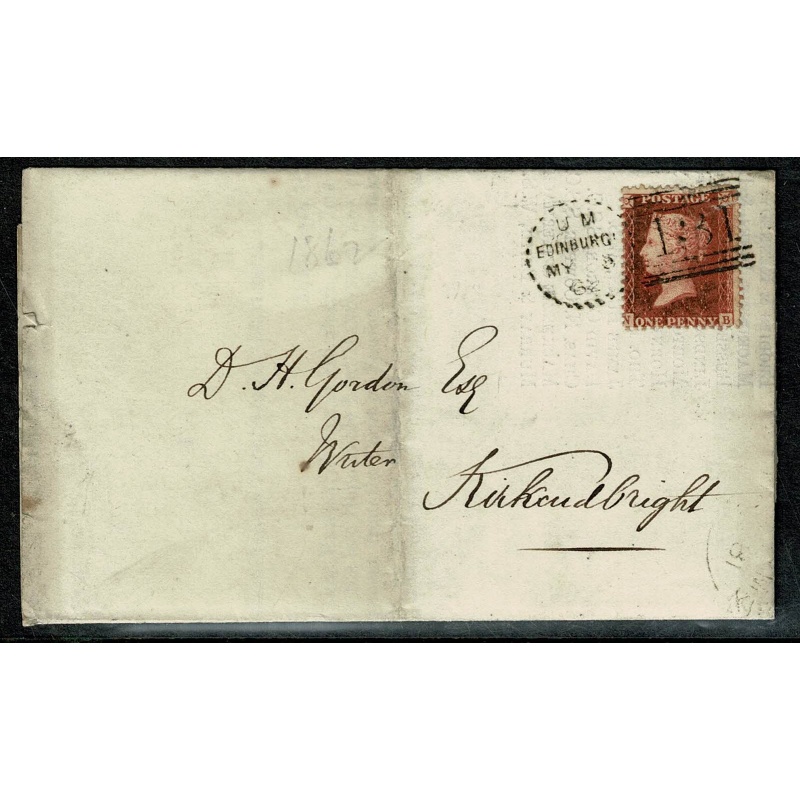 1862
U M
EDINBURGH
MY 8
62
POSTAGE
131
ONE PENNY
B
D. H. Gordon Esq
Writer
Kirkcudbright